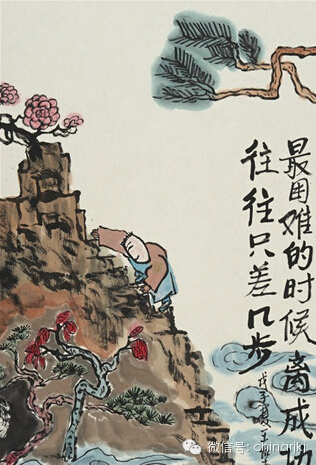 最困难的时候离成功
往往只差几步
微信号: chinarjkj